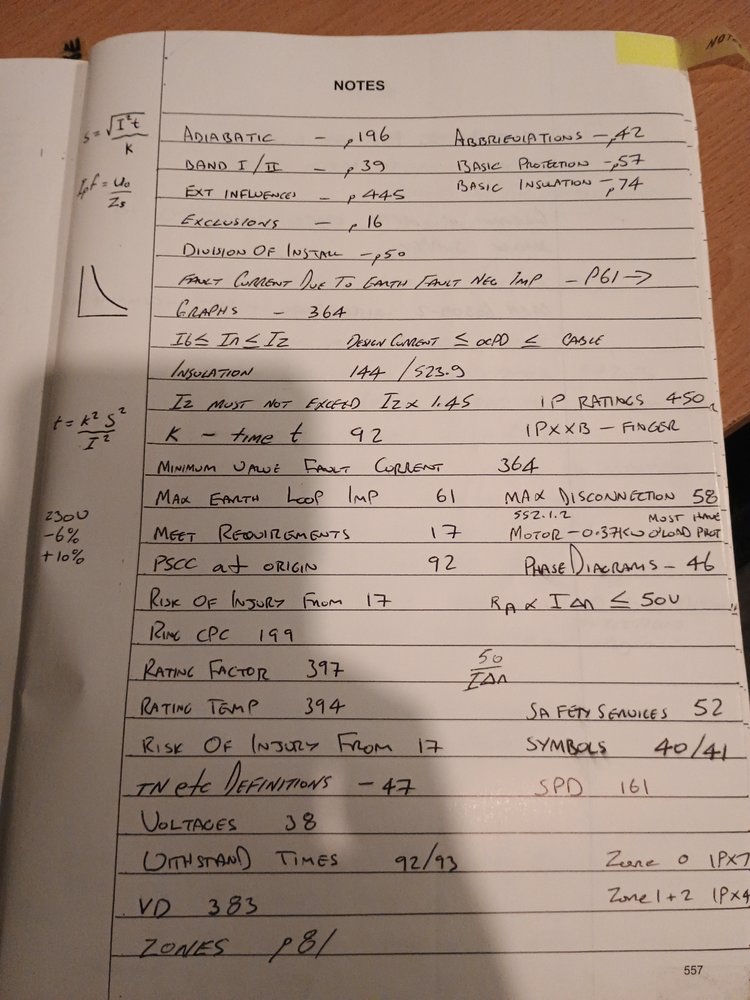 NOT
NOTES
S = √I²t / K
ADIABATIC - p196 ABBRIEVIATIONS - p42
BAND I / II - p39 BASIC PROTECTION - p57
Ipf = Uo / Zs
EXT INFLUENCES - p445 BASIC INSULATION - p74
EXCLUSIONS - p16
DIVISION OF INSTALL - p50
FAULT CURRENT DUE TO EARTH FAULT NEG IMP - P61 →
GRAPHS - 364
Ib ≤ In ≤ Iz DESIGN CURRENT ≤ OCPD ≤ CABLE
INSULATION 144 / 523.9
I2 MUST NOT EXCEED Iz x 1.45 IP RATINGS 450
t = k² S² / I²
K - time t 92 IPXXB - FINGER
MINIMUM VALUE FAULT CURRENT 364
MAX EARTH LOOP IMP 61 MAX DISCONNECTION 58
230V
-6%
+10%
552.1.2 MUST HAVE
MEET REQUIREMENTS 17 MOTOR - 0.37KW O'LOAD PROT
PSCC at ORIGIN 92 PHASE DIAGRAMS - 46
RISK OF INJURY FROM 17 RA x IΔn ≤ 50V
RING CPC 199
RATING FACTOR 397 50 / IΔn
RATING TEMP 394 SAFETY SERVICES 52
RISK OF INJURY FROM 17 SYMBOLS 40/41
TN etc DEFINITIONS - 47 SPD 161
VOLTAGES 38
WITHSTAND TIMES 92/93 Zone 0 IPX7
VD 383 Zone 1 + 2 IPX4
ZONES p81
557